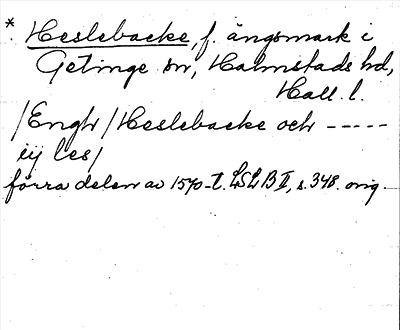 * Heslebacke, f. ängsmark i
Getinge sn, Halmstads hd,
Hall. l.
/Engh/Heslebacke och -----
ej les/
förra delen av 1570-t. LSLB II, s. 348. orig.